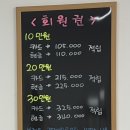 <회원권>
10만원
카드 → 105.000 적립
현금 → 110.000
20만원
카드 → 215.000 적립
현금 → 225.000
30만원
카드 → 325.000 적립
현금 → 340.000